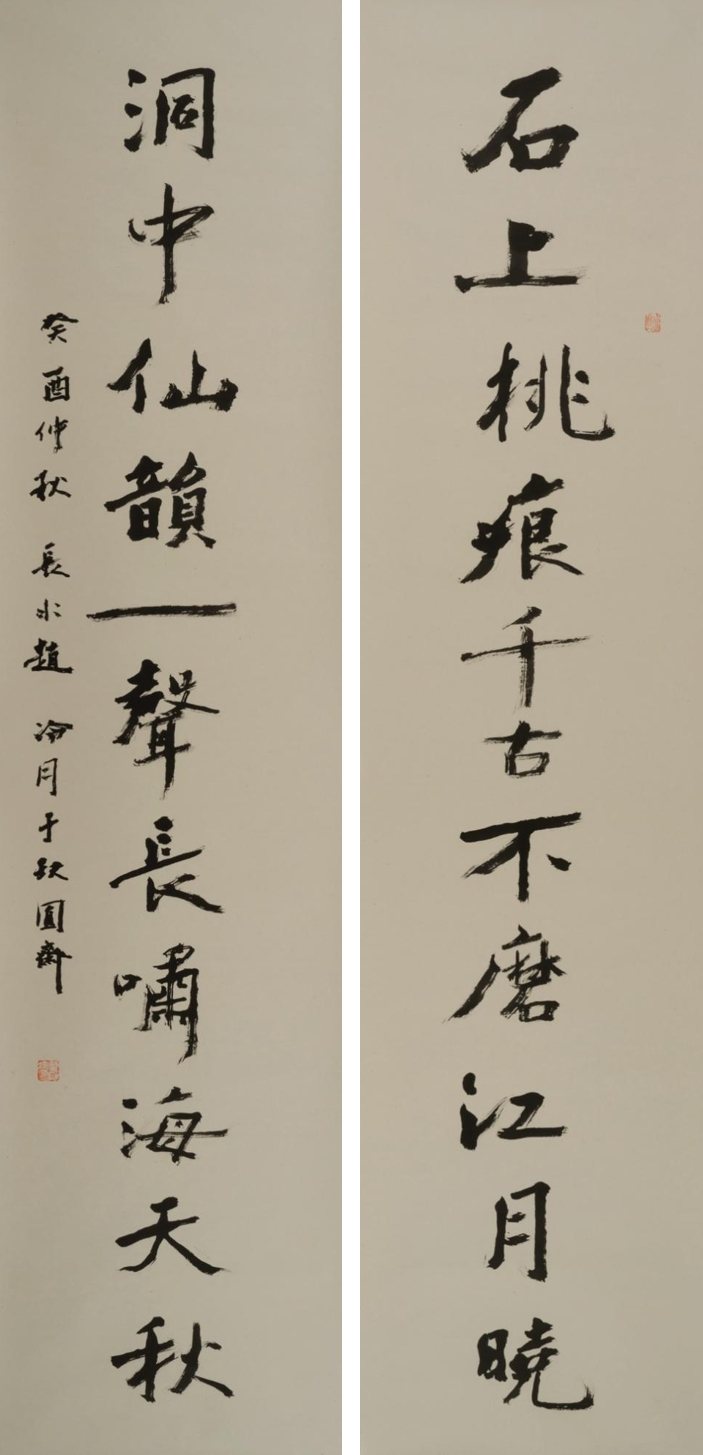 石上桃痕千古不磨江月曉
洞中仙韻一聲長嘯海天秋
癸酉仲秋 長水趙冷月于缺圓齋